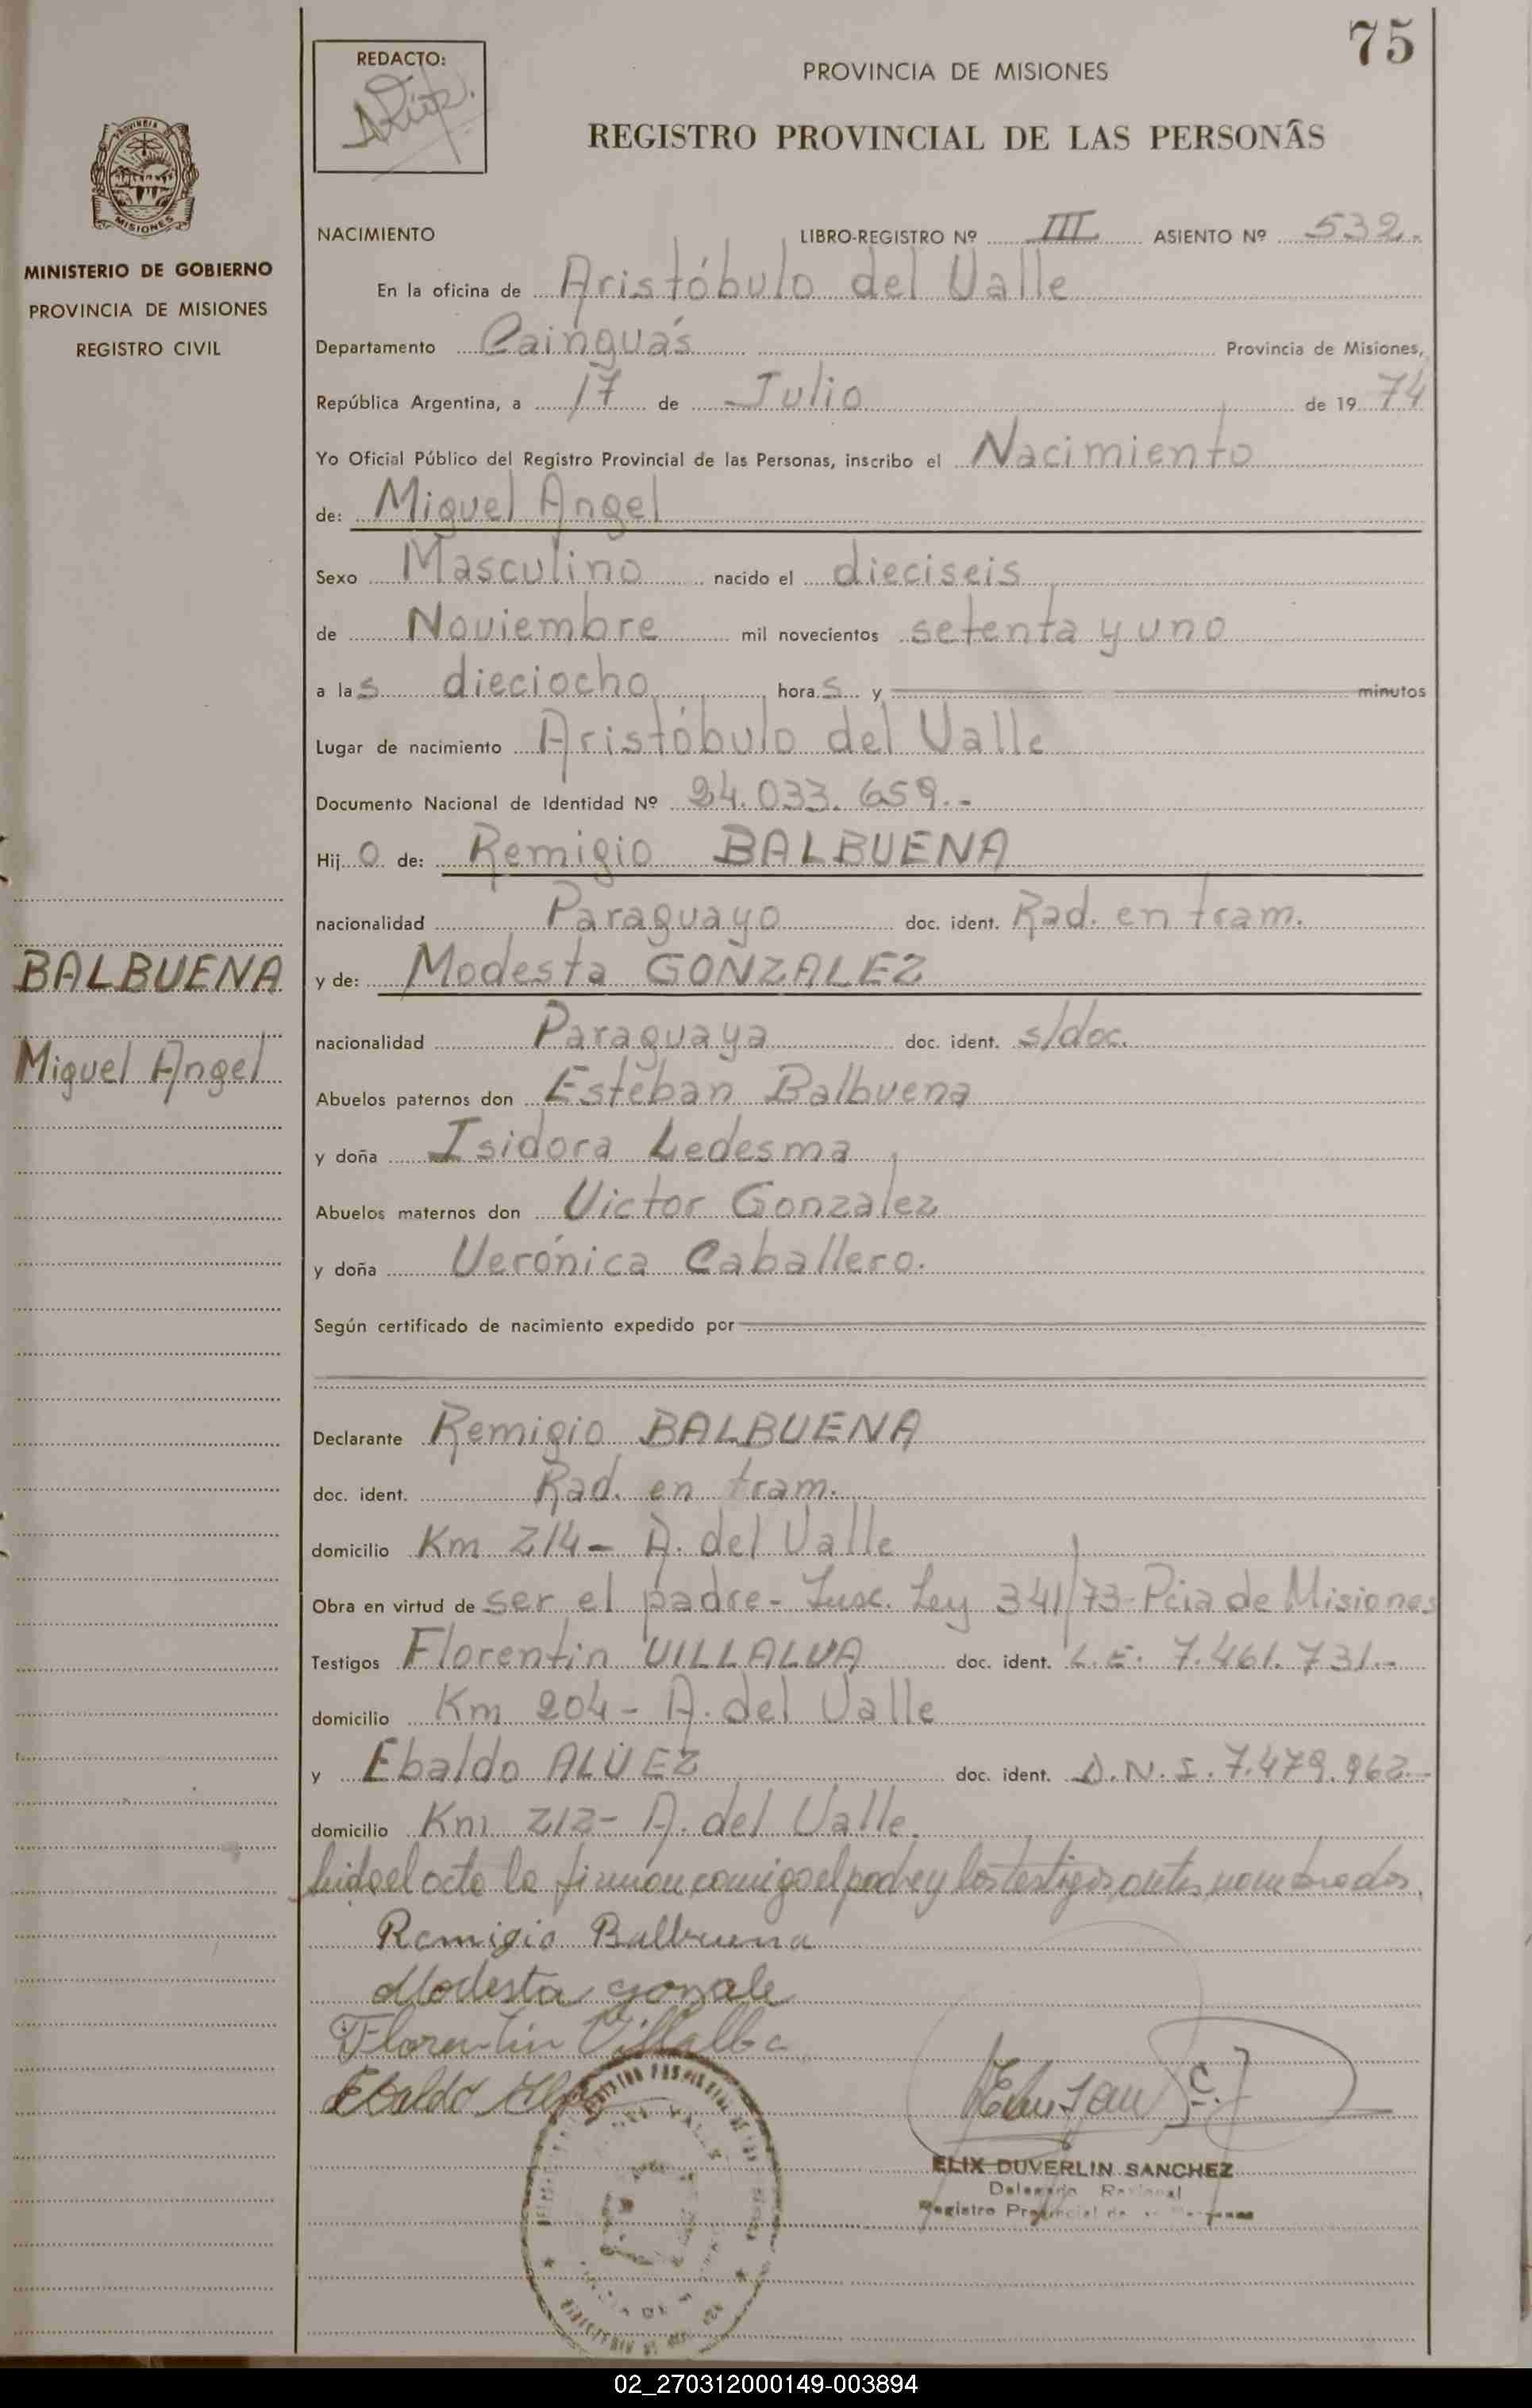 75
REDACTO:
PROVINCIA DE MISIONES
REGISTRO PROVINCIAL DE LAS PERSONAS
PROVINCIA
MISIONES
MINISTERIO DE GOBIERNO
PROVINCIA DE MISIONES
REGISTRO CIVIL
NACIMIENTO LIBRO-REGISTRO Nº III ASIENTO Nº 532.-
En la oficina de Aristóbulo del Valle
Departamento Cainguás Provincia de Misiones,
República Argentina, a 17 de Julio de 1974
Yo Oficial Público del Registro Provincial de las Personas, inscribo el Nacimiento
de: Miguel Angel
Sexo Masculino nacido el dieciseis
de Noviembre mil novecientos setenta y uno
a las dieciocho horas y minutos
Lugar de nacimiento Aristóbulo del Valle
Documento Nacional de Identidad Nº 24.033.659.-
Hijo de: Remigio BALBUENA
nacionalidad Paraguayo doc. ident. Rad. en tram.
BALBUENA
Miguel Angel
y de: Modesta GONZALEZ
nacionalidad Paraguaya doc. ident. s/doc.
Abuelos paternos don Esteban Balbuena
y doña Isidora Ledesma
Abuelos maternos don Victor Gonzalez
y doña Verónica Caballero.
Según certificado de nacimiento expedido por
Declarante Remigio BALBUENA
doc. ident. Rad. en tram.
domicilio Km 214- A. del Valle
Obra en virtud de ser el padre- Insc. Ley 341/73-Pcia de Misiones
Testigos Florentin VILLALVA doc. ident. L.E. 7.461.731.-
domicilio Km 204- A. del Valle
y Ebaldo ALVEZ doc. ident. D.N.I. 7.479.962.-
domicilio Km 212- A. del Valle.
leida el acta la firman conmigo el padre y los testigos antes nombrados.
Remigio Balbuena
Modesta gonzale
Florentin Villalba
Ebaldo
ELIX DUVERLIN SANCHEZ
Delegado Regional
Registro Provincial de
02_270312000149-003894